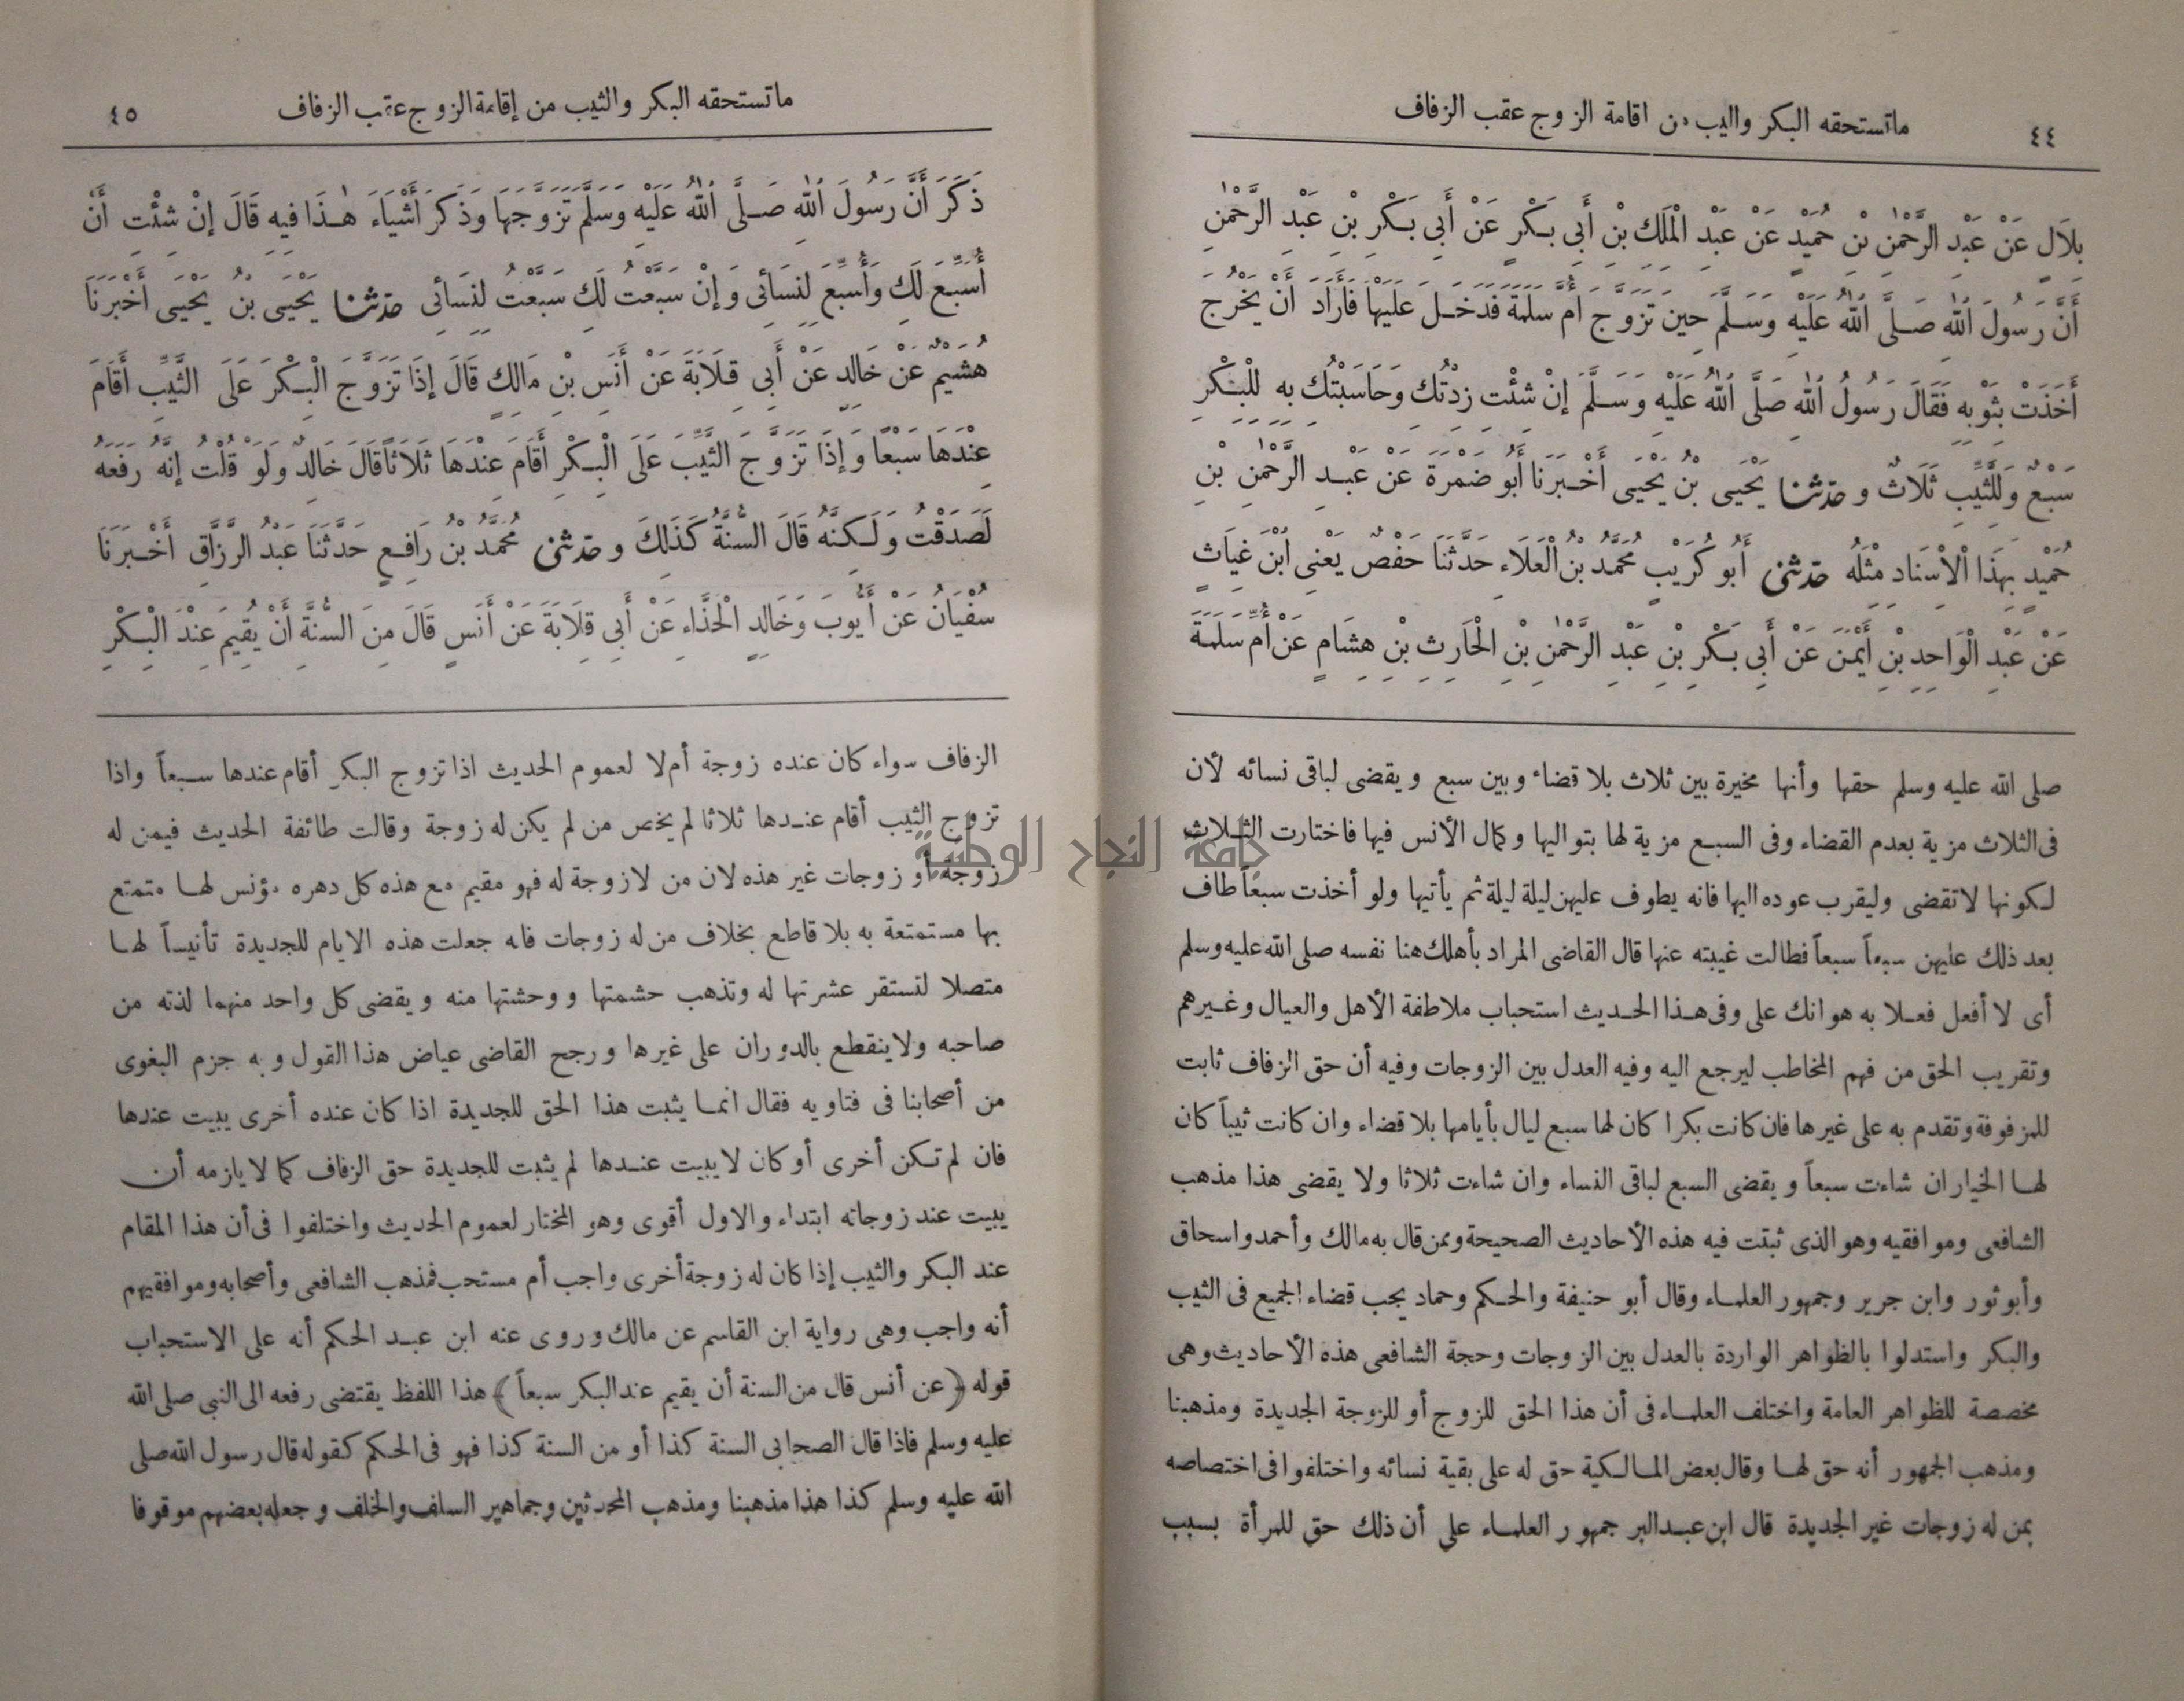 ماتستحقه البكر واليب من اقامة الزوج عقب الزفاف
٤٤
بِلَالٍ عَنْ عَبْدِ الرَّحْمٰنِ بْنِ حُمَيْدٍ عَنْ عَبْدِ الْمَلِكِ بْنِ أَبِي بَكْرٍ عَنْ أَبِي بَكْرِ بْنِ عَبْدِ الرَّحْمٰنِ
أَنَّ رَسُولَ اللهِ صَلَّى اللهُ عَلَيْهِ وَسَلَّمَ حِينَ تَزَوَّجَ أُمَّ سَلَمَةَ فَدَخَلَ عَلَيْهَا فَأَرَادَ أَنْ يَخْرُجَ
أَخَذَتْ بِثَوْبِهِ فَقَالَ رَسُولُ اللهِ صَلَّى اللهُ عَلَيْهِ وَسَلَّمَ إِنْ شِئْتِ زِدْتُكِ وَحَاسَبْتُكِ بِهِ لِلْبِكْرِ
سَبْعٌ وَلِلثَّيِّبِ ثَلَاثٌ و حدثنا يَحْيَى بْنُ يَحْيَى أَخْبَرَنَا أَبُو ضَمْرَةَ عَنْ عَبْدِ الرَّحْمٰنِ بْنِ
حُمَيْدٍ بِهَذَا الْاِسْنَادِ مِثْلَهُ حدثني أَبُو كُرَيْبٍ مُحَمَّدُ بْنُ الْعَلَاءِ حَدَّثَنَا حَفْصٌ يَعْنِى ابْنَ غِيَاثٍ
عَنْ عَبْدِ الْوَاحِدِ بْنِ أَيْمَنَ عَنْ أَبِي بَكْرِ بْنِ عَبْدِ الرَّحْمٰنِ بْنِ الْحَارِثِ بْنِ هِشَامٍ عَنْ أُمِّ سَلَمَةَ
صلى الله عليه وسلم حقها وأنها مخيرة بين ثلاث بلا قضاء وبين سبع ويقضى لباقى نسائه لأن
فى الثلاث مزية بعدم القضاء وفى السبع مزية لها بتواليها وكمال الأنس فيها فاختارت الثلاث
لكونها لاتقضى وليقرب عوده اليها فانه يطوف عليهن ليلة ليلة ثم يأتيها ولو أخذت سبعاً طاف
بعد ذلك عليهن سبعاً سبعاً فطالت غيبته عنها قال القاضى المراد بأهلك هنا نفسه صلى الله عليه وسلم
أى لا أفعل فعلا به هوانك على وفى هذا الحديث استحباب ملاطفة الأهل والعيال وغيرهم
وتقريب الحق من فهم المخاطب ليرجع اليه وفيه العدل بين الزوجات وفيه أن حق الزفاف ثابت
للمزفوفة وتقدم به على غيرها فان كانت بكرا كان لها سبع ليال بأيامها بلا قضاء وان كانت ثيباً كان
لها الخيار ان شاءت سبعاً ويقضى السبع لباقى النساء وان شاءت ثلاثا ولا يقضى هذا مذهب
الشافعى وموافقيه وهو الذى ثبتت فيه هذه الأحاديث الصحيحة وممن قال به مالك وأحمد واسحاق
وأبو ثور وابن جرير وجمهور العلماء وقال أبو حنيفة والحكم وحماد يجب قضاء الجميع فى الثيب
والبكر واستدلوا بالظواهر الواردة بالعدل بين الزوجات وحجة الشافعى هذه الأحاديث وهى
مخصصة للظواهر العامة واختلف العلماء فى أن هذا الحق للزوج أو للزوجة الجديدة ومذهبنا
ومذهب الجمهور أنه حق لها وقال بعض المالكية حق له على بقية نسائه واختلفوا فى اختصاصه
بمن له زوجات غير الجديدة قال ابن عبدالبر جمهور العلماء على أن ذلك حق للمرأة بسبب
ماتستحقه البكر والثيب من إقامة الزوج عقب الزفاف
٤٥
ذَكَرَ أَنَّ رَسُولَ اللهِ صَلَّى اللهُ عَلَيْهِ وَسَلَّمَ تَزَوَّجَهَا وَذَكَرَ أَشْيَاءَ هٰذَا فِيهِ قَالَ إِنْ شِئْتِ أَنْ
أُسَبِّعَ لَكِ وَأُسَبِّعَ لِنِسَائِى وَإِنْ سَبَّعْتُ لَكِ سَبَّعْتُ لِنِسَائِى حدثنا يَحْيَى بْنُ يَحْيَى أَخْبَرَنَا
هُشَيْمٌ عَنْ خَالِدٍ عَنْ أَبِي قِلَابَةَ عَنْ أَنَسِ بْنِ مَالِكٍ قَالَ إِذَا تَزَوَّجَ الْبِكْرَ عَلَى الثَّيِّبِ أَقَامَ
عِنْدَهَا سَبْعًا وَإِذَا تَزَوَّجَ الثَّيِّبَ عَلَى الْبِكْرِ أَقَامَ عِنْدَهَا ثَلَاثًا قَالَ خَالِدٌ وَلَوْ قُلْتُ إِنَّهُ رَفَعَهُ
لَصَدَقْتُ وَلَكِنَّهُ قَالَ السُّنَّةُ كَذَلِكَ و حدثني مُحَمَّدُ بْنُ رَافِعٍ حَدَّثَنَا عَبْدُ الرَّزَّاقِ أَخْبَرَنَا
سُفْيَانُ عَنْ أَيُّوبَ وَخَالِدٍ الْحَذَّاءِ عَنْ أَبِي قِلَابَةَ عَنْ أَنَسٍ قَالَ مِنَ السُّنَّةِ أَنْ يُقِيمَ عِنْدَ الْبِكْرِ
الزفاف سواء كان عنده زوجة أم لا لعموم الحديث اذا تزوج البكر أقام عندها سبعاً واذا
تزوج الثيب أقام عندها ثلاثا لم يخص من لم يكن له زوجة وقالت طائفة الحديث فيمن له
زوجة أو زوجات غير هذه لان من لا زوجة له فهو مقيم مع هذه كل دهره مؤنس لها متمتع
بها مستمتعة به بلا قاطع بخلاف من له زوجات فانه جعلت هذه الايام للجديدة تأنيساً لها
متصلا لتستقر عشرتها له وتذهب حشمتها ووحشتها منه ويقضى كل واحد منهما لذته من
صاحبه ولا ينقطع بالدوران على غيرها ورجح القاضى عياض هذا القول وبه جزم البغوى
من أصحابنا فى فتاويه فقال انما يثبت هذا الحق للجديدة اذا كان عنده أخرى يبيت عندها
فان لم تكن أخرى أو كان لا يبيت عندها لم يثبت للجديدة حق الزفاف كما لا يلزمه أن
يبيت عند زوجاته ابتداء والاول أقوى وهو المختار لعموم الحديث واختلفوا فى أن هذا المقام
عند البكر والثيب إذا كان له زوجة أخرى واجب أم مستحب فمذهب الشافعى وأصحابه وموافقيهم
أنه واجب وهى رواية ابن القاسم عن مالك وروى عنه ابن عبد الحكم أنه على الاستحباب
قوله ﴿عن أنس قال من السنة أن يقيم عند البكر سبعاً﴾ هذا اللفظ يقتضى رفعه الى النبى صلى الله
عليه وسلم فاذا قال الصحابى السنة كذا أو من السنة كذا فهو فى الحكم كقوله قال رسول الله صلى
الله عليه وسلم كذا هذا مذهبنا ومذهب المحدثين وجماهير السلف والخلف وجعله بعضهم موقوفا
جامعة النجاح الوطنية